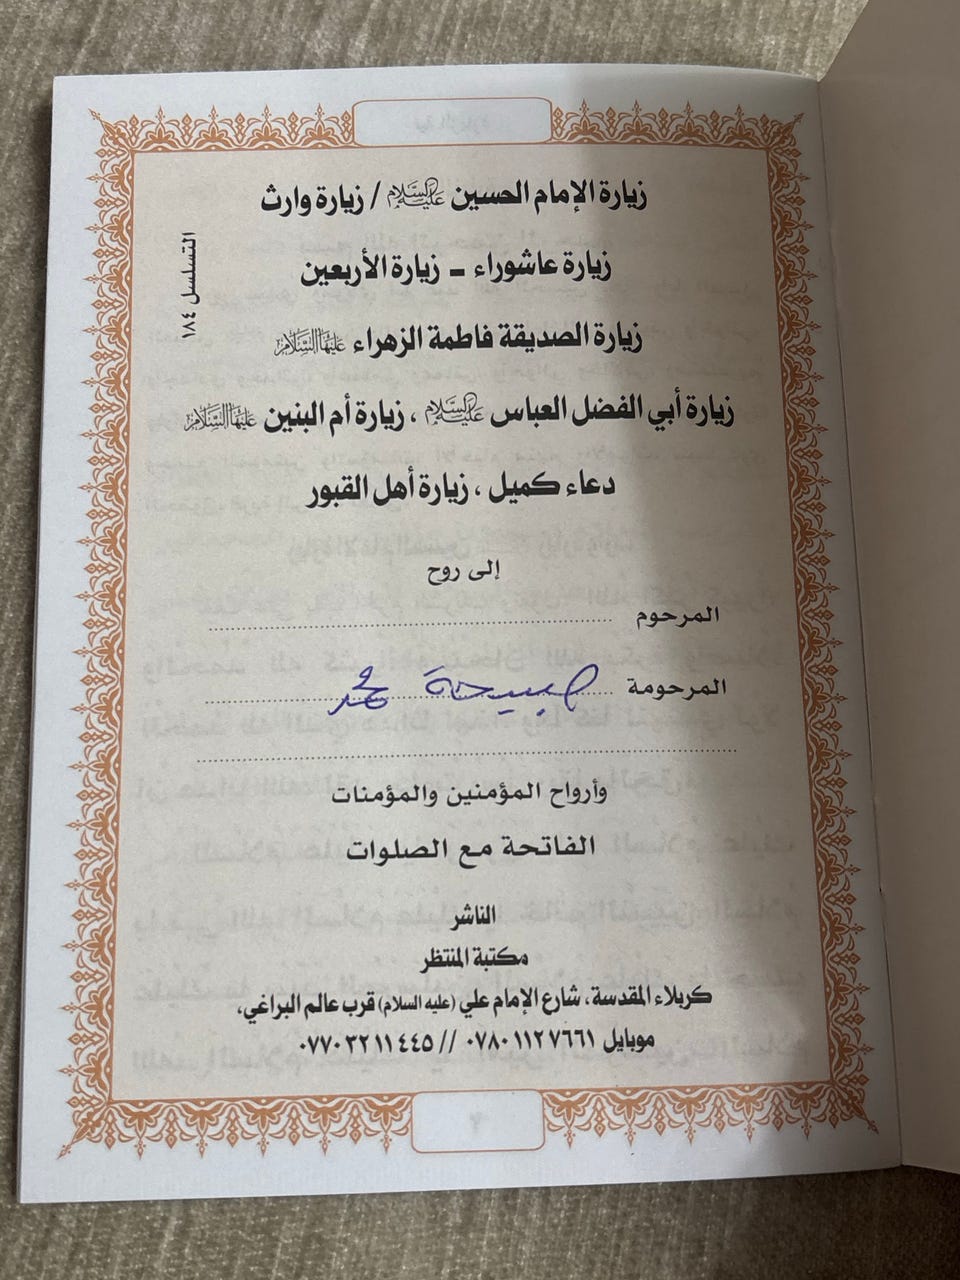 زيارة الإمام الحسين عليه السلام / زيارة وارث
زيارة عاشوراء - زيارة الأربعين
زيارة الصديقة فاطمة الزهراء عليها السلام
زيارة أبي الفضل العباس عليه السلام ، زيارة أم البنين عليها السلام
دعاء كميل ، زيارة أهل القبور
التسلسل ١٨٤
إلى روح
المرحوم
المرحومة صبيحة محمد
وأرواح المؤمنين والمؤمنات
الفاتحة مع الصلوات
الناشر
مكتبة المنتظر
كربلاء المقدسة، شارع الإمام علي (عليه السلام) قرب عالم البراغي،
موبايل ٠٧٨٠١١٢٧٦٦١ // ٠٧٧٠٣٢١١٤٤٥